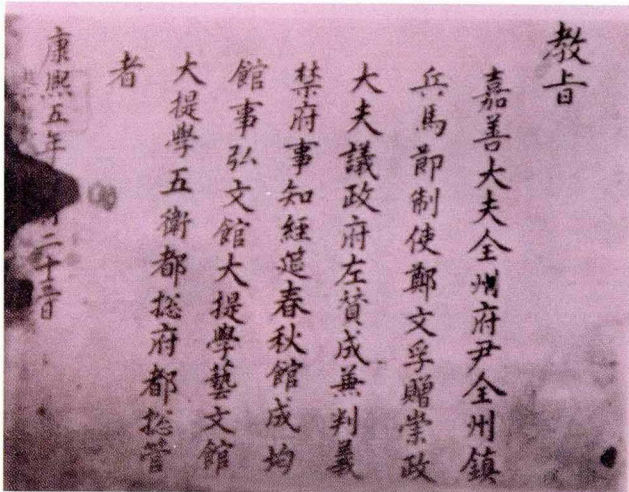 教旨
嘉善大夫全州府尹全州鎮
兵馬節制使鄭文孚贈崇政
大夫議政府左賛成兼判義
禁府事知経筵春秋館成均
館事弘文館大提學藝文館
大提學五衛都捴府都捴管
者
康熙五年 月二十 日